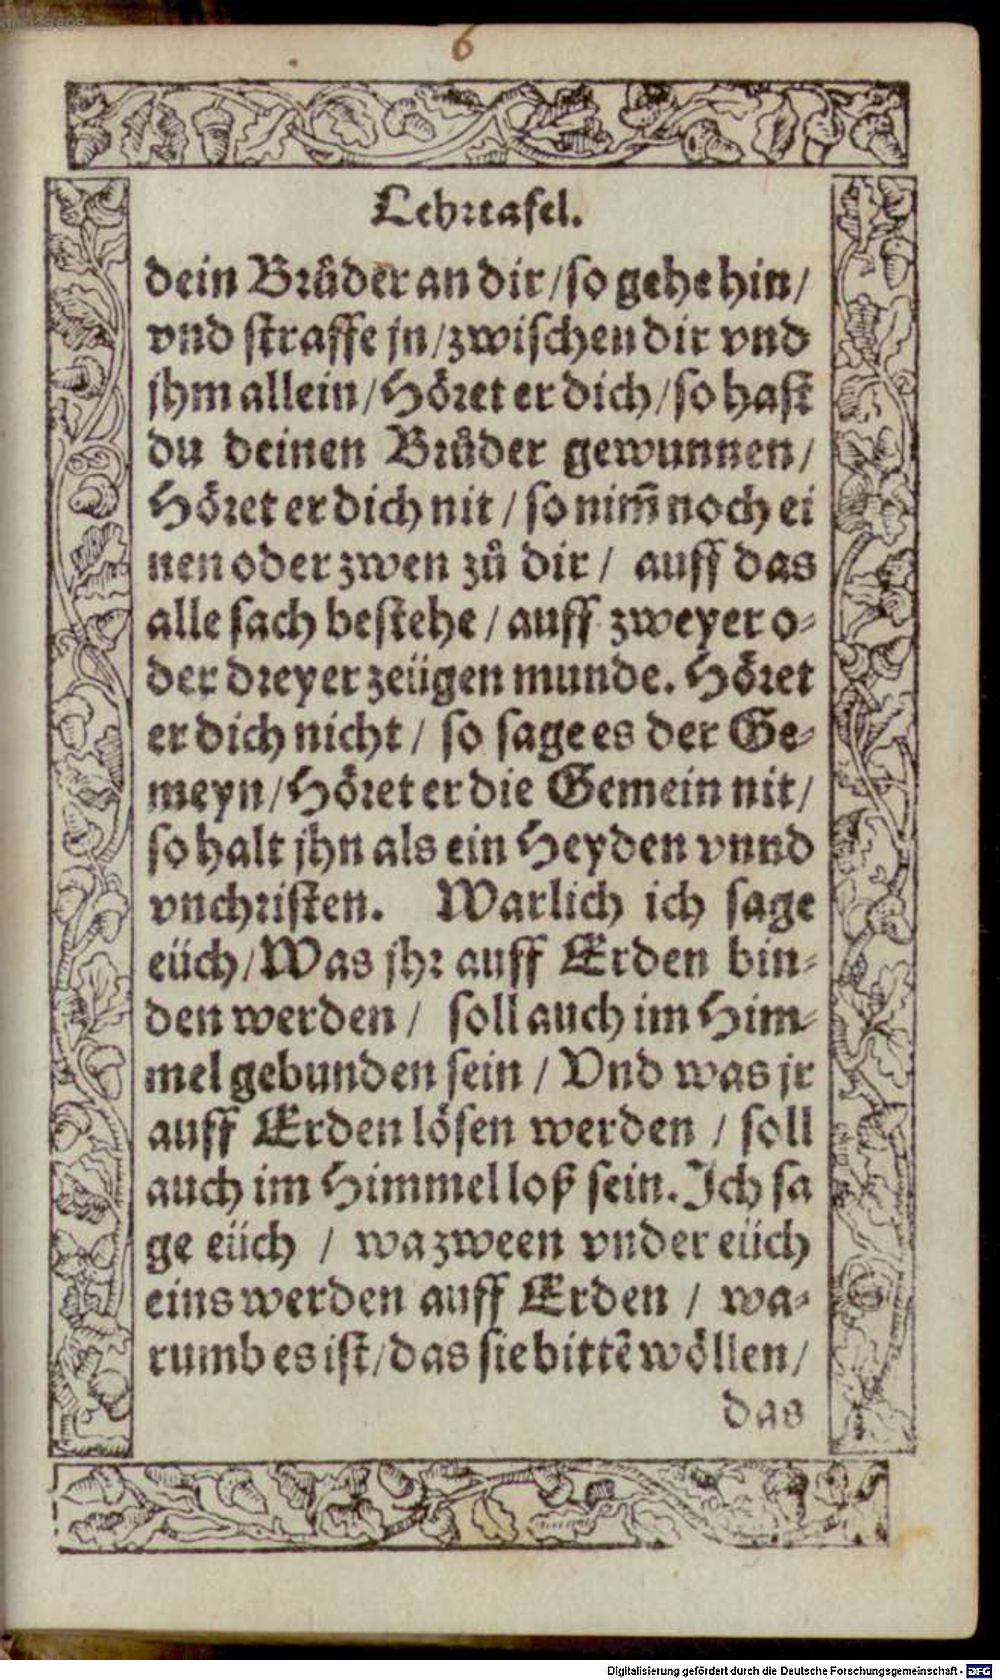 6
Lehrtafel.
dein Brůder an dir / so gehe hin /
vnd straffe jn / zwischen dir vnd
jhm allein / Höret er dich / so hast
du deinen Brůder gewunnen /
Höret er dich nit / so nim̃ noch ei
nen oder zwen zů dir / auff das
alle sach bestehe / auff zweyer o-
der dreyer zeügen munde. Höret
er dich nicht / so sage es der Ge-
meyn / Höret er die Gemein nit /
so halt jhn als ein Heyden vnnd
vnchristen. Warlich ich sage
eüch / Was jhr auff Erden bin-
den werden / soll auch im Him-
mel gebunden sein / Vnd was jr
auff Erden lösen werden / soll
auch im Himmel loß sein. Ich sa
ge eüch / wa zween vnder eüch
eins werden auff Erden / wa-
rumb es ist / das sie bittẽ wöllen /
das
Digitalisierung gefördert durch die Deutsche Forschungsgemeinschaft - DFG